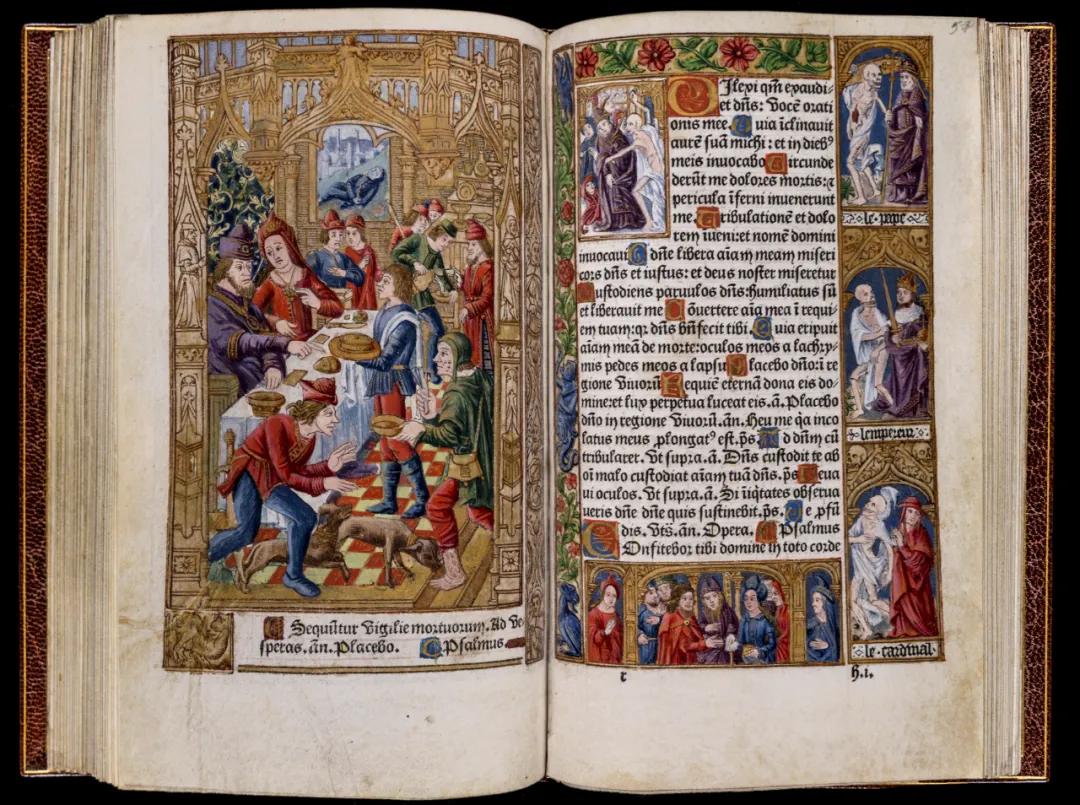 Sequūtur Vigilie mortuorum. Ad Ve
speras. añ. Placebo. Psalmus
57
Dilexi qm̄ exaudi-
et dn̄s: Vocē orati
onis mee. Quia īclinauit
aurē suā michi: et in dieb⁹
meis inuocabo Circunde
derūt me dolores mortis: ⁊
pericula īferni inuenerunt
me. Tribulationē et dolo
rem iueni: et nomē domini
inuocaui O dn̄e libera aīam meam miseri
cors dn̄s et iustus: et deus noster miseretur
Custodiens paruulos dn̄s: humiliatus sū
et liberauit me Conuertere aīa mea ī requi-
em tuam: qr dn̄s bn̄fecit tibi. Quia eripuit
aīam meā de morte: oculos meos a lachry-
mis pedes meos a lapsu Placebo dn̄o: ī re
gione Viuorū. Requiē eternā dona eis do-
mine: et lux perpetua luceat eis. a. Placebo
dn̄o in regione Viuorū. an. Heu me qa inco
latus meus ꝓlongat⁹ est. ps. Ad dn̄m cū
tribularer. Vt supra. a. Dn̄s custodit te ab
oī malo custodiat aīam tuā dn̄s. ps Leua
ui oculos. Vt supra. a. Si īiqtates obserua
ueris dn̄e dn̄e quis sustinebit. ps. De ꝓfū
dis. Vts. an. Opera. Psalmus
Confitebor tibi domine in toto corde
le pape
lempereur
le cardinal
r
h.i.